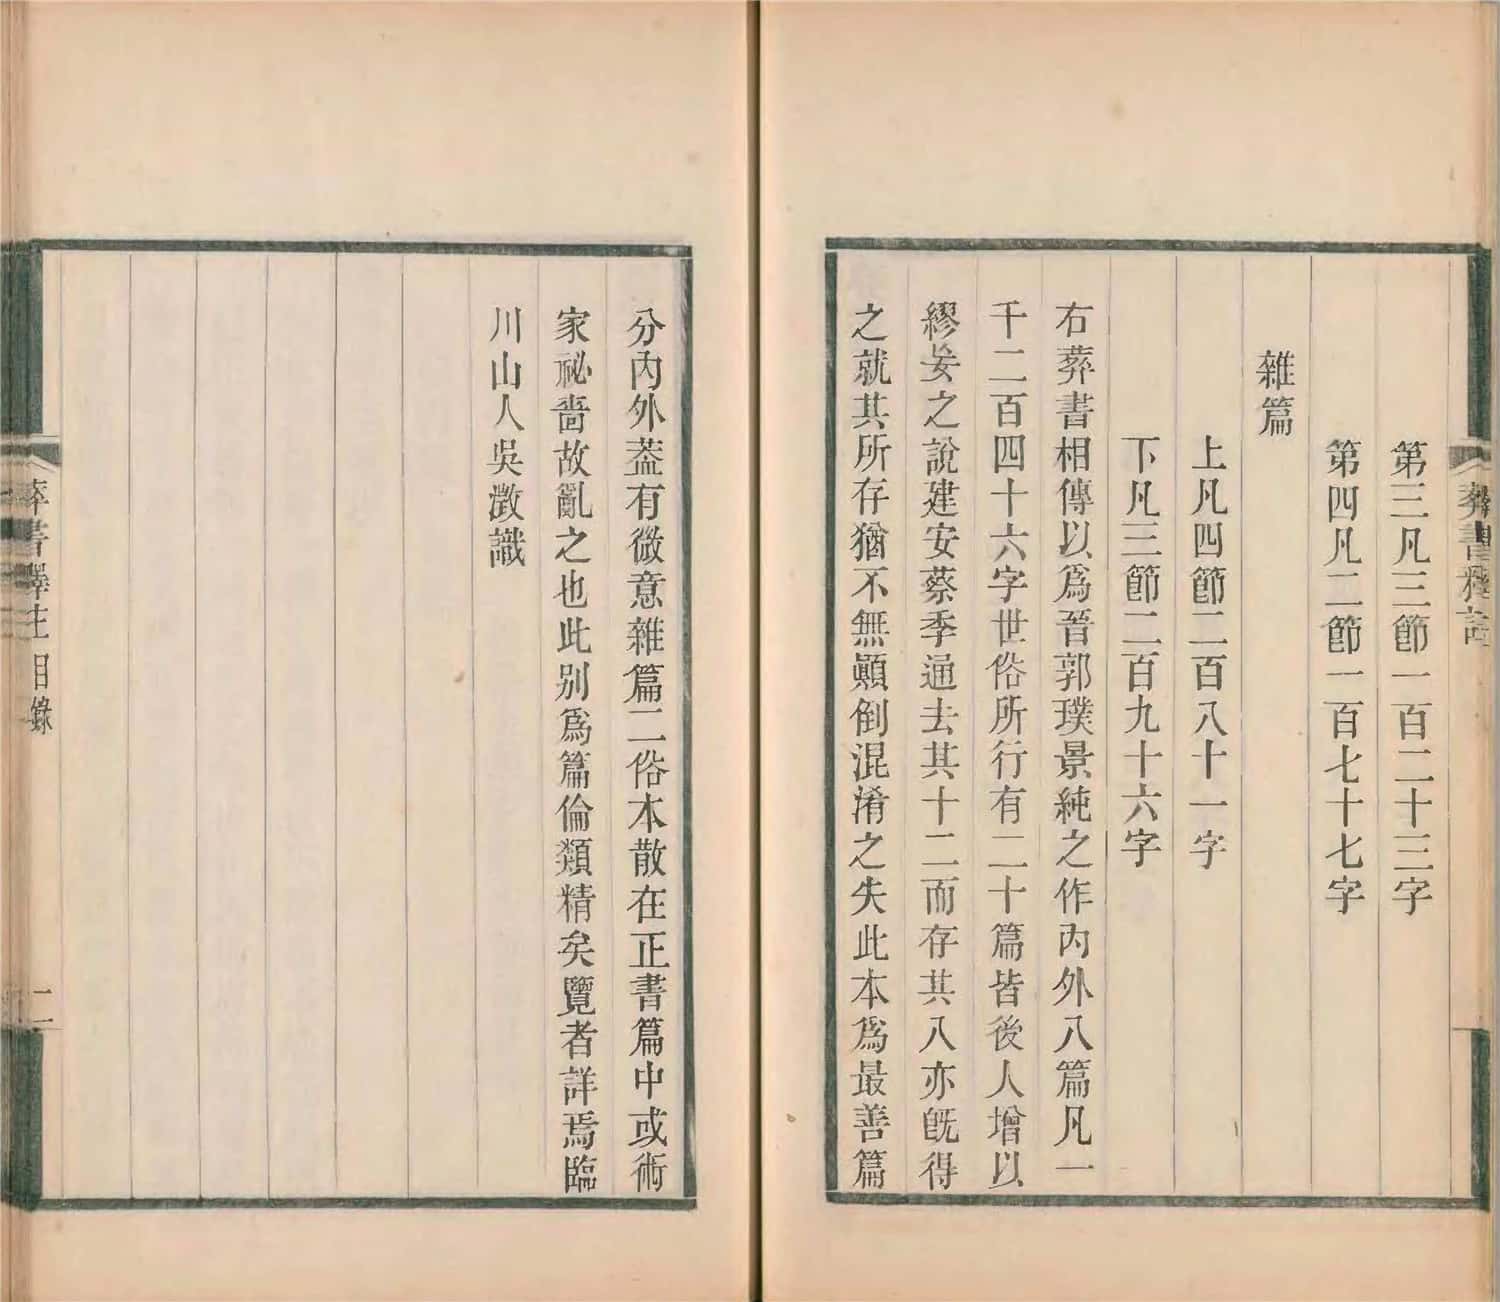 葬書釋註
第三凡三節一百二十三字
第四凡二節一百七十七字
雜篇
上凡四節二百八十一字
下凡三節二百九十六字
右葬書相傳以爲晉郭璞景純之作內外八篇凡一
千二百四十六字世俗所行有二十篇皆後人增以
繆妄之說建安蔡季通去其十二而存其八亦旣得
之就其所存猶不無顚倒混淆之失此本爲最善篇
分內外蓋有微意雜篇二俗本散在正書篇中或術
家祕嗇故亂之也此别爲篇倫類精矣覽者詳焉臨
川山人吳澂識
葬書釋註 目錄
二